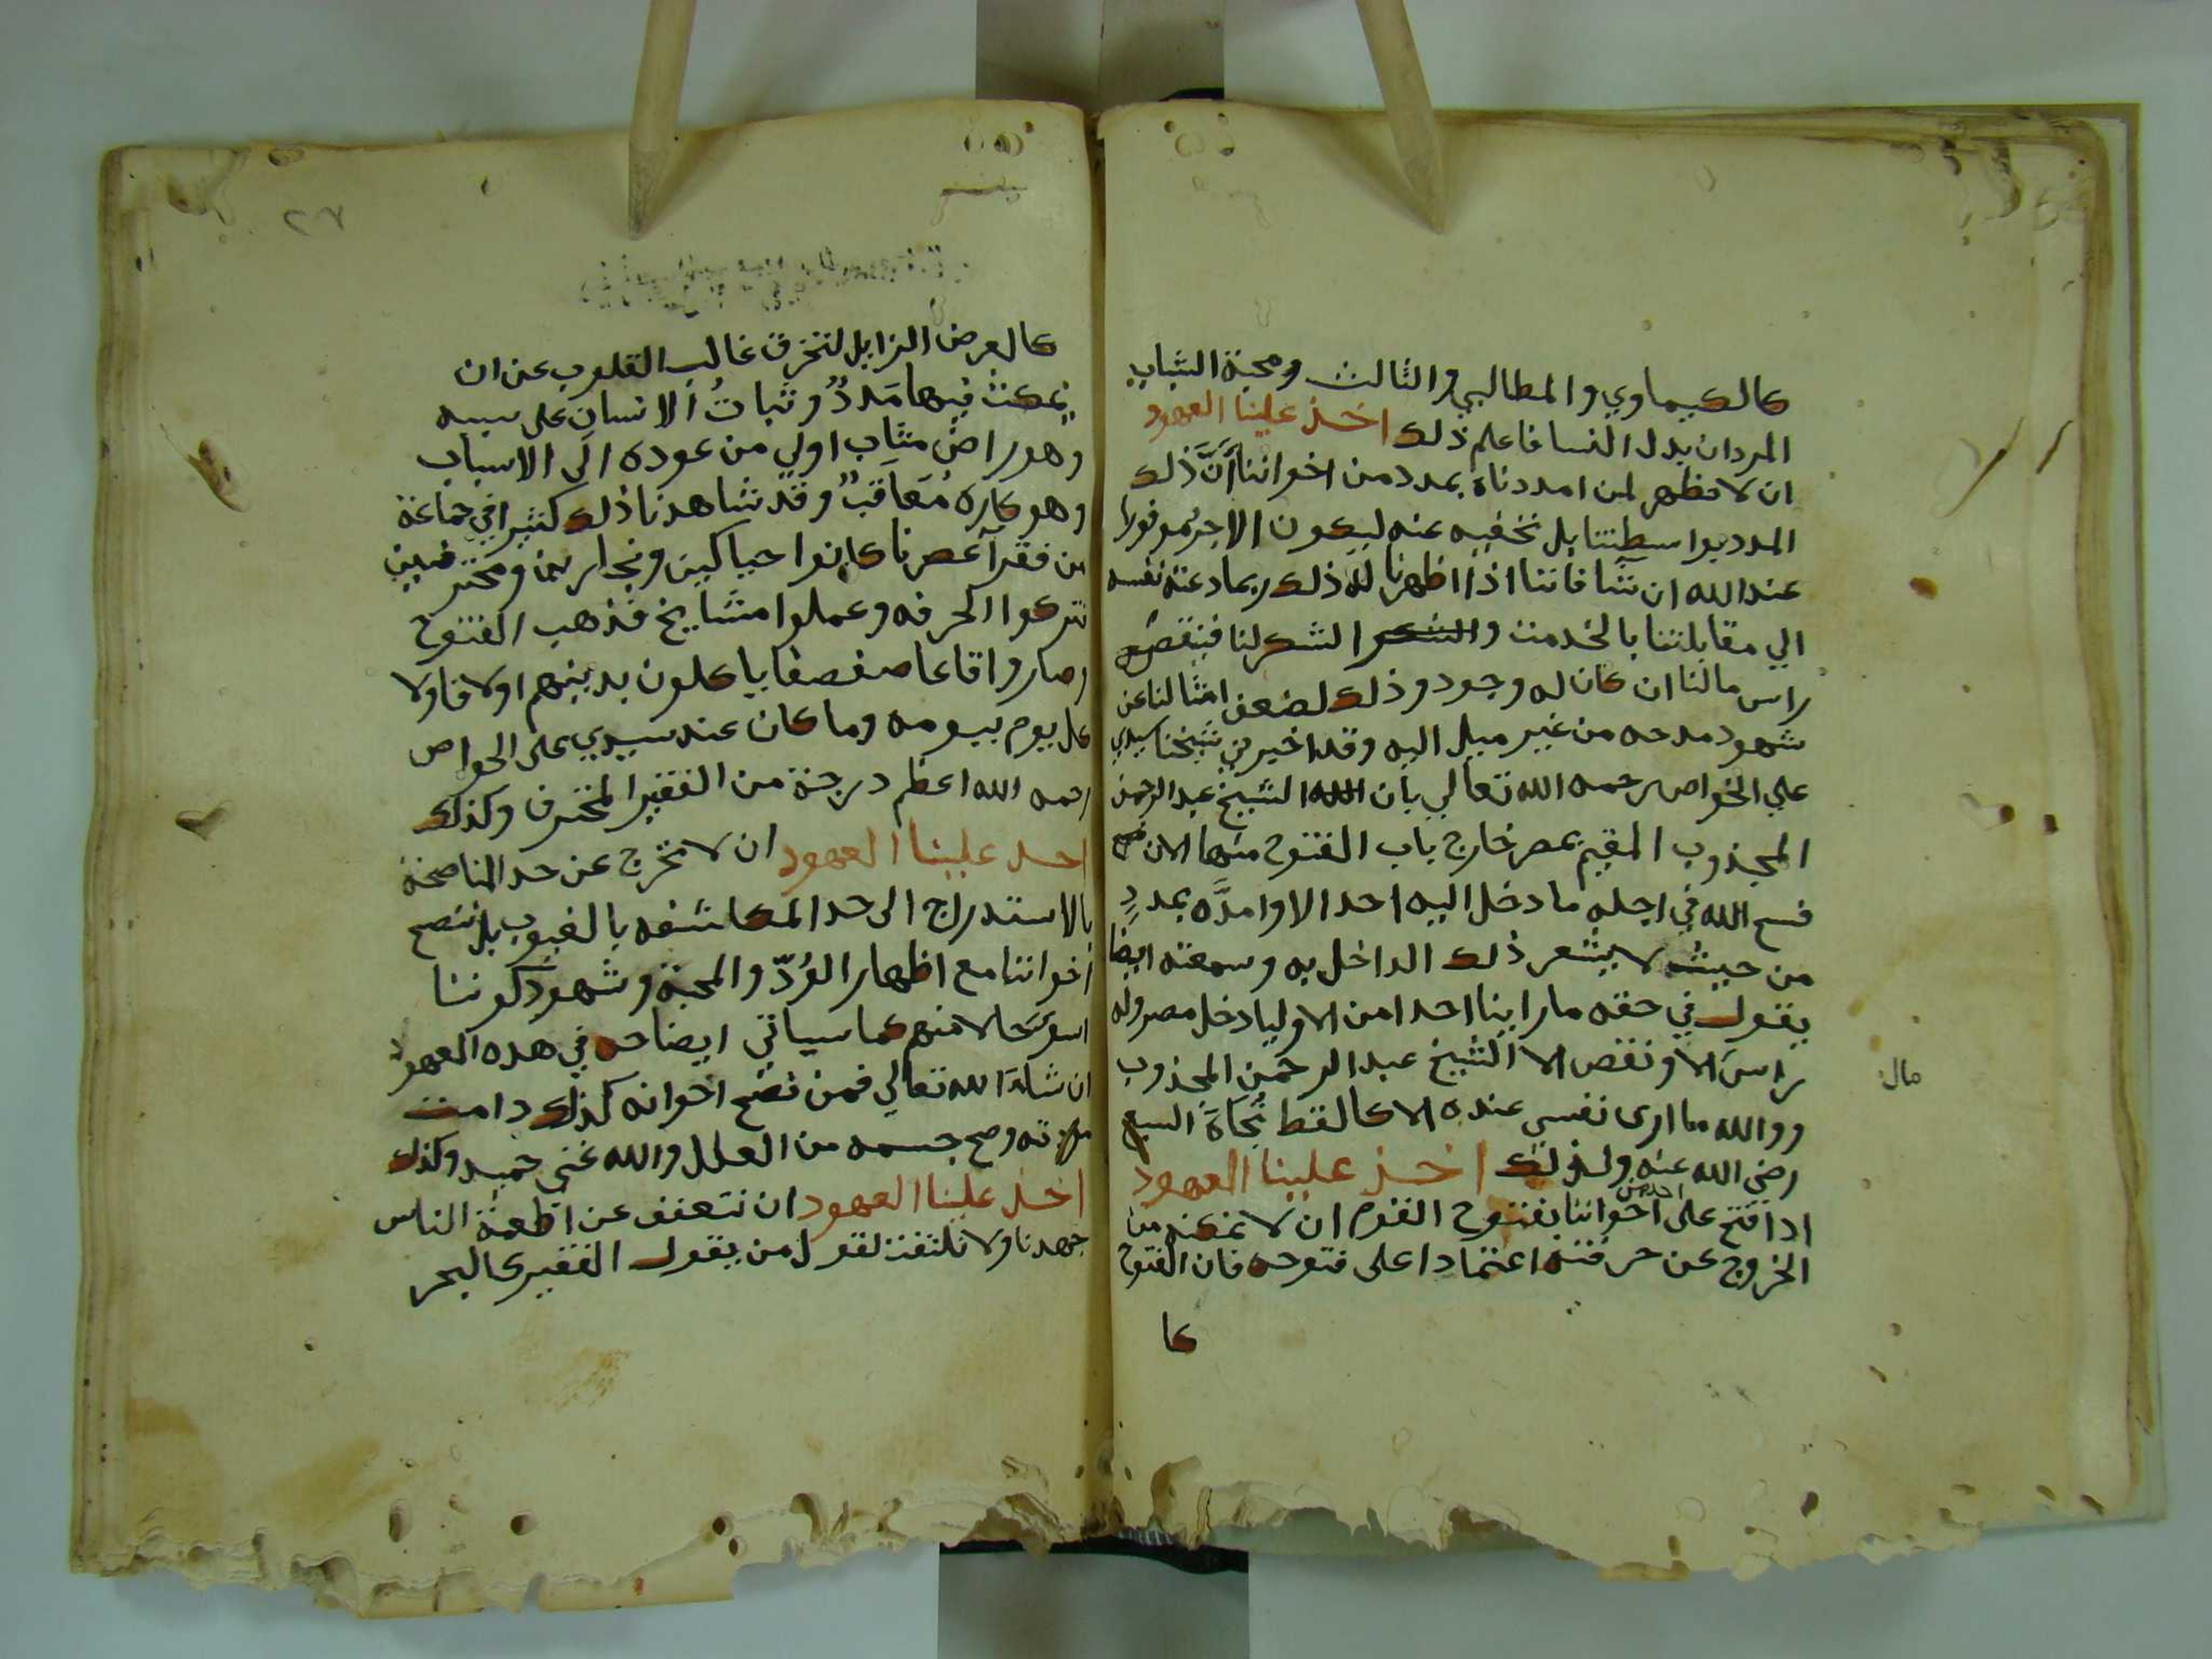 كالكيماوي والمطالبي والثالث ومحبة الشباب
المردان بدل النسا فاعلم ذلك اخذ علينا العهود
ان لا نظهر لمن امددناه بمدد من اخواننا أنَّ ذلك
المدد بواسطتنا بل نخفيه عنه ليكون الاجر موفورا
عند الله ان شا فاننا اذا اظهرنا له ذلك ربما دعته نفسه
الي مقابلتنا بالخدمت والشكر الشكر لنا فينقص
راس مالنا ان كان له وجود وذلك لضعف امثالنا عن
شهود مدحه من غير ميل اليه وقد اخبرني شيخنا سيدي
علي الخواص رحمه الله تعالي بان الشيخ عبد الرحمن
المجذوب المقيم بمصر خارج باب الفتوح منها الان
فسح الله في اجله ما دخل اليه احد الا وامدَّه بمددٍ
من حيث لا يشعر ذلك الداخل به وسمعته ايضا
يقول في حقه ما راينا احدا من الاوليا دخل مصر وله
راس الا ونقص الا الشيخ عبد الرحمن المجذوب
مال
ووالله ما ارى نفسي عنده الا كالقط تُجَاهَ السبع
رضي الله عنه ولذلك اخذ علينا العهود
احد من
اذا فتح على اخواننا بفتوح القوم ان لا نمكنه من
الخروج عن حرفته اعتمادا على فتوحه فان الفتوح
كا
٢٧
كالعرض الزايل لتخرق غالب القلوب عن ان
يمكث فيها مَددٌ وثباتُ الانسان على سببه
وهو راضٍ مثاب اولي من عوده الى الاسباب
وهو كاره مُعَاقَبٌ وقد شاهدنا ذلك كثيرا في جماعة
من فقرآ عصرنا كانوا حياكين ونجارين ومحترفين
تركوا الحرفه وعملوا مشايخ فذهب الفتوح
وصاروا قاعا صفصفا ياكلون بدينهم اولا فاولا
كل يوم بيومه وما كان عند سيدي على الخواص
رحمه الله اعظم درجة من الفقير المحترف وكذلك
اخذ علينا العهود ان لا نخرج عن حد المناصحة
بالاستدراج الى حد المكاشفه بالغيوب بل ننصح
اخواننا مع اظهار الوُدّ والمحبة وشهود كوننا
اسوَءَ حالا منهم كما سياتي ايضاحه في هذه العهود
ان شاءَ الله تعالي فمن نصح اخوانه كذلك دامت
مودته وصح جسمه من العلل والله غني حميد وكذلك
اخذ علينا العهود ان نتعفف عن اطعمة الناس
جهدنا ولا نلتفت لقول من يقول الفقير كالبحر